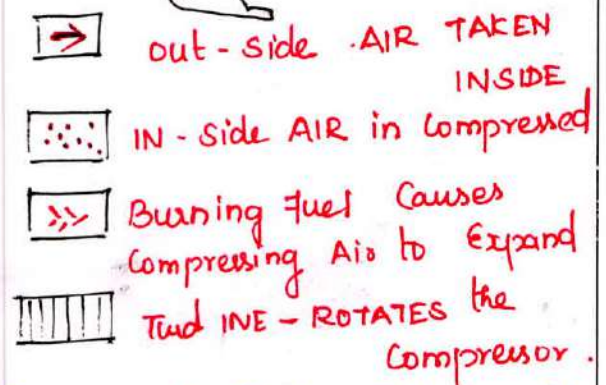 out-side .AIR TAKEN
INSIDE
IN-Side AIR in Compressed
Burning Fuel Causes
Compressing Air to Expand
INE-ROTATES the
Compressor.